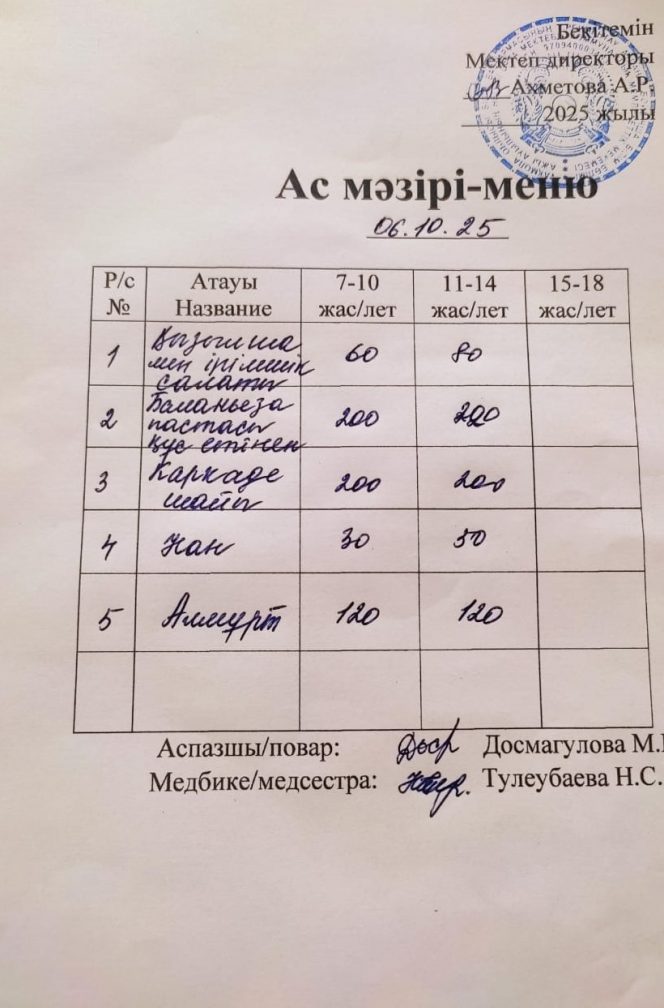 Бекітемін
Мектеп директоры
Ахметова А.Р.
2025 жылы
Ас мәзірі-меню
06.10.25
Р/с № Атауы Название 7-10 жас/лет 11-14 жас/лет 15-18 жас/лет
1 Қызылша мен ірімшік салаты 60 80
2 Баланьеза пастасы құс етінен 200 200
3 Каркаде шайы 200 200
4 Нан 30 50
5 Алмұрт 120 120
Аспазшы/повар: Досмагулова М.
Медбике/медсестра: Тулеубаева Н.С.